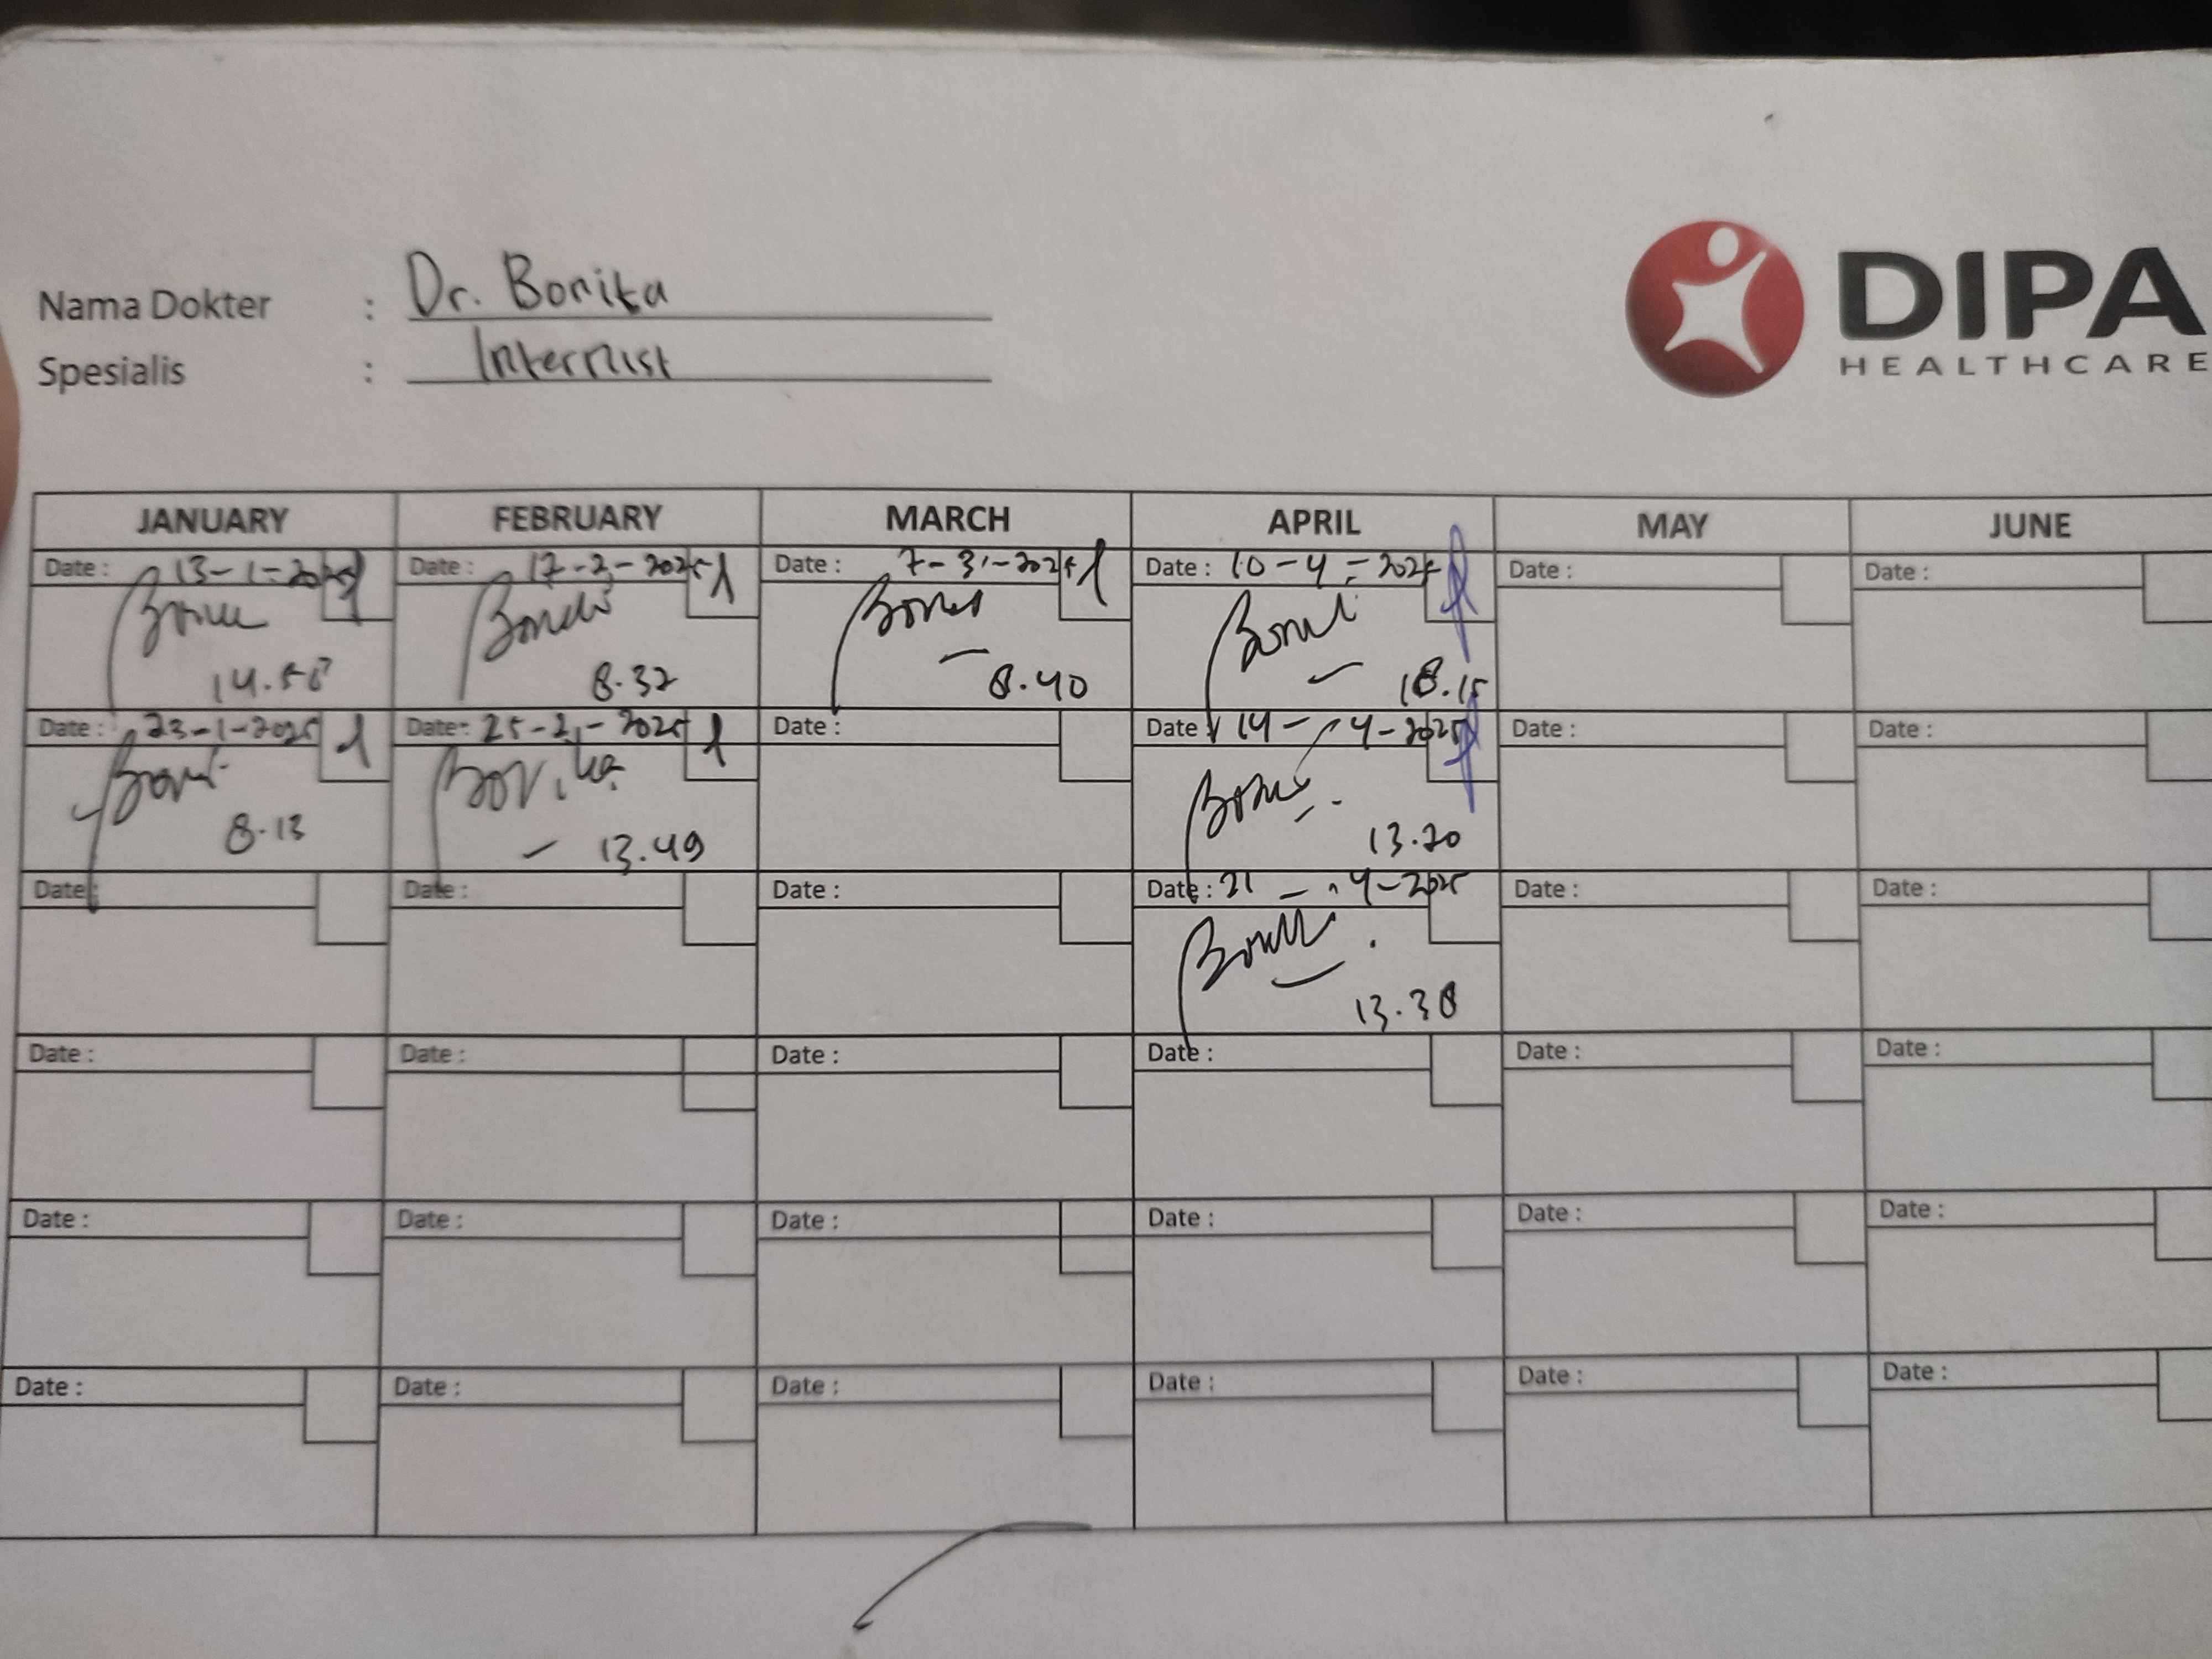 Nama Dokter : Dr. Bonita
Spesialis : Internist
DIPA
HEALTHCARE
JANUARY FEBRUARY MARCH APRIL MAY JUNE
Date : 13-1-2025 Date : 17-2-2025 Date : 7-3-2025 Date : 10-4-2025 Date : Date :
8.32 8.40 18.15
Date : 23-1-2025 Date : 25-2-2025 Date : Date : 14-4-2025 Date : Date :
Bonita
8.13 13.49 13.20
Date : Date : Date : Date : 21-4-2025 Date : Date :
13.38
Date : Date : Date : Date : Date : Date :
Date : Date : Date : Date : Date : Date :
Date : Date : Date : Date : Date : Date :